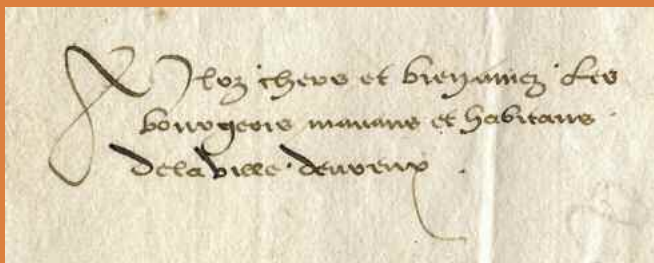 A Noz chers et bien amez les
bourgeois manans et habitans
de la ville deureux